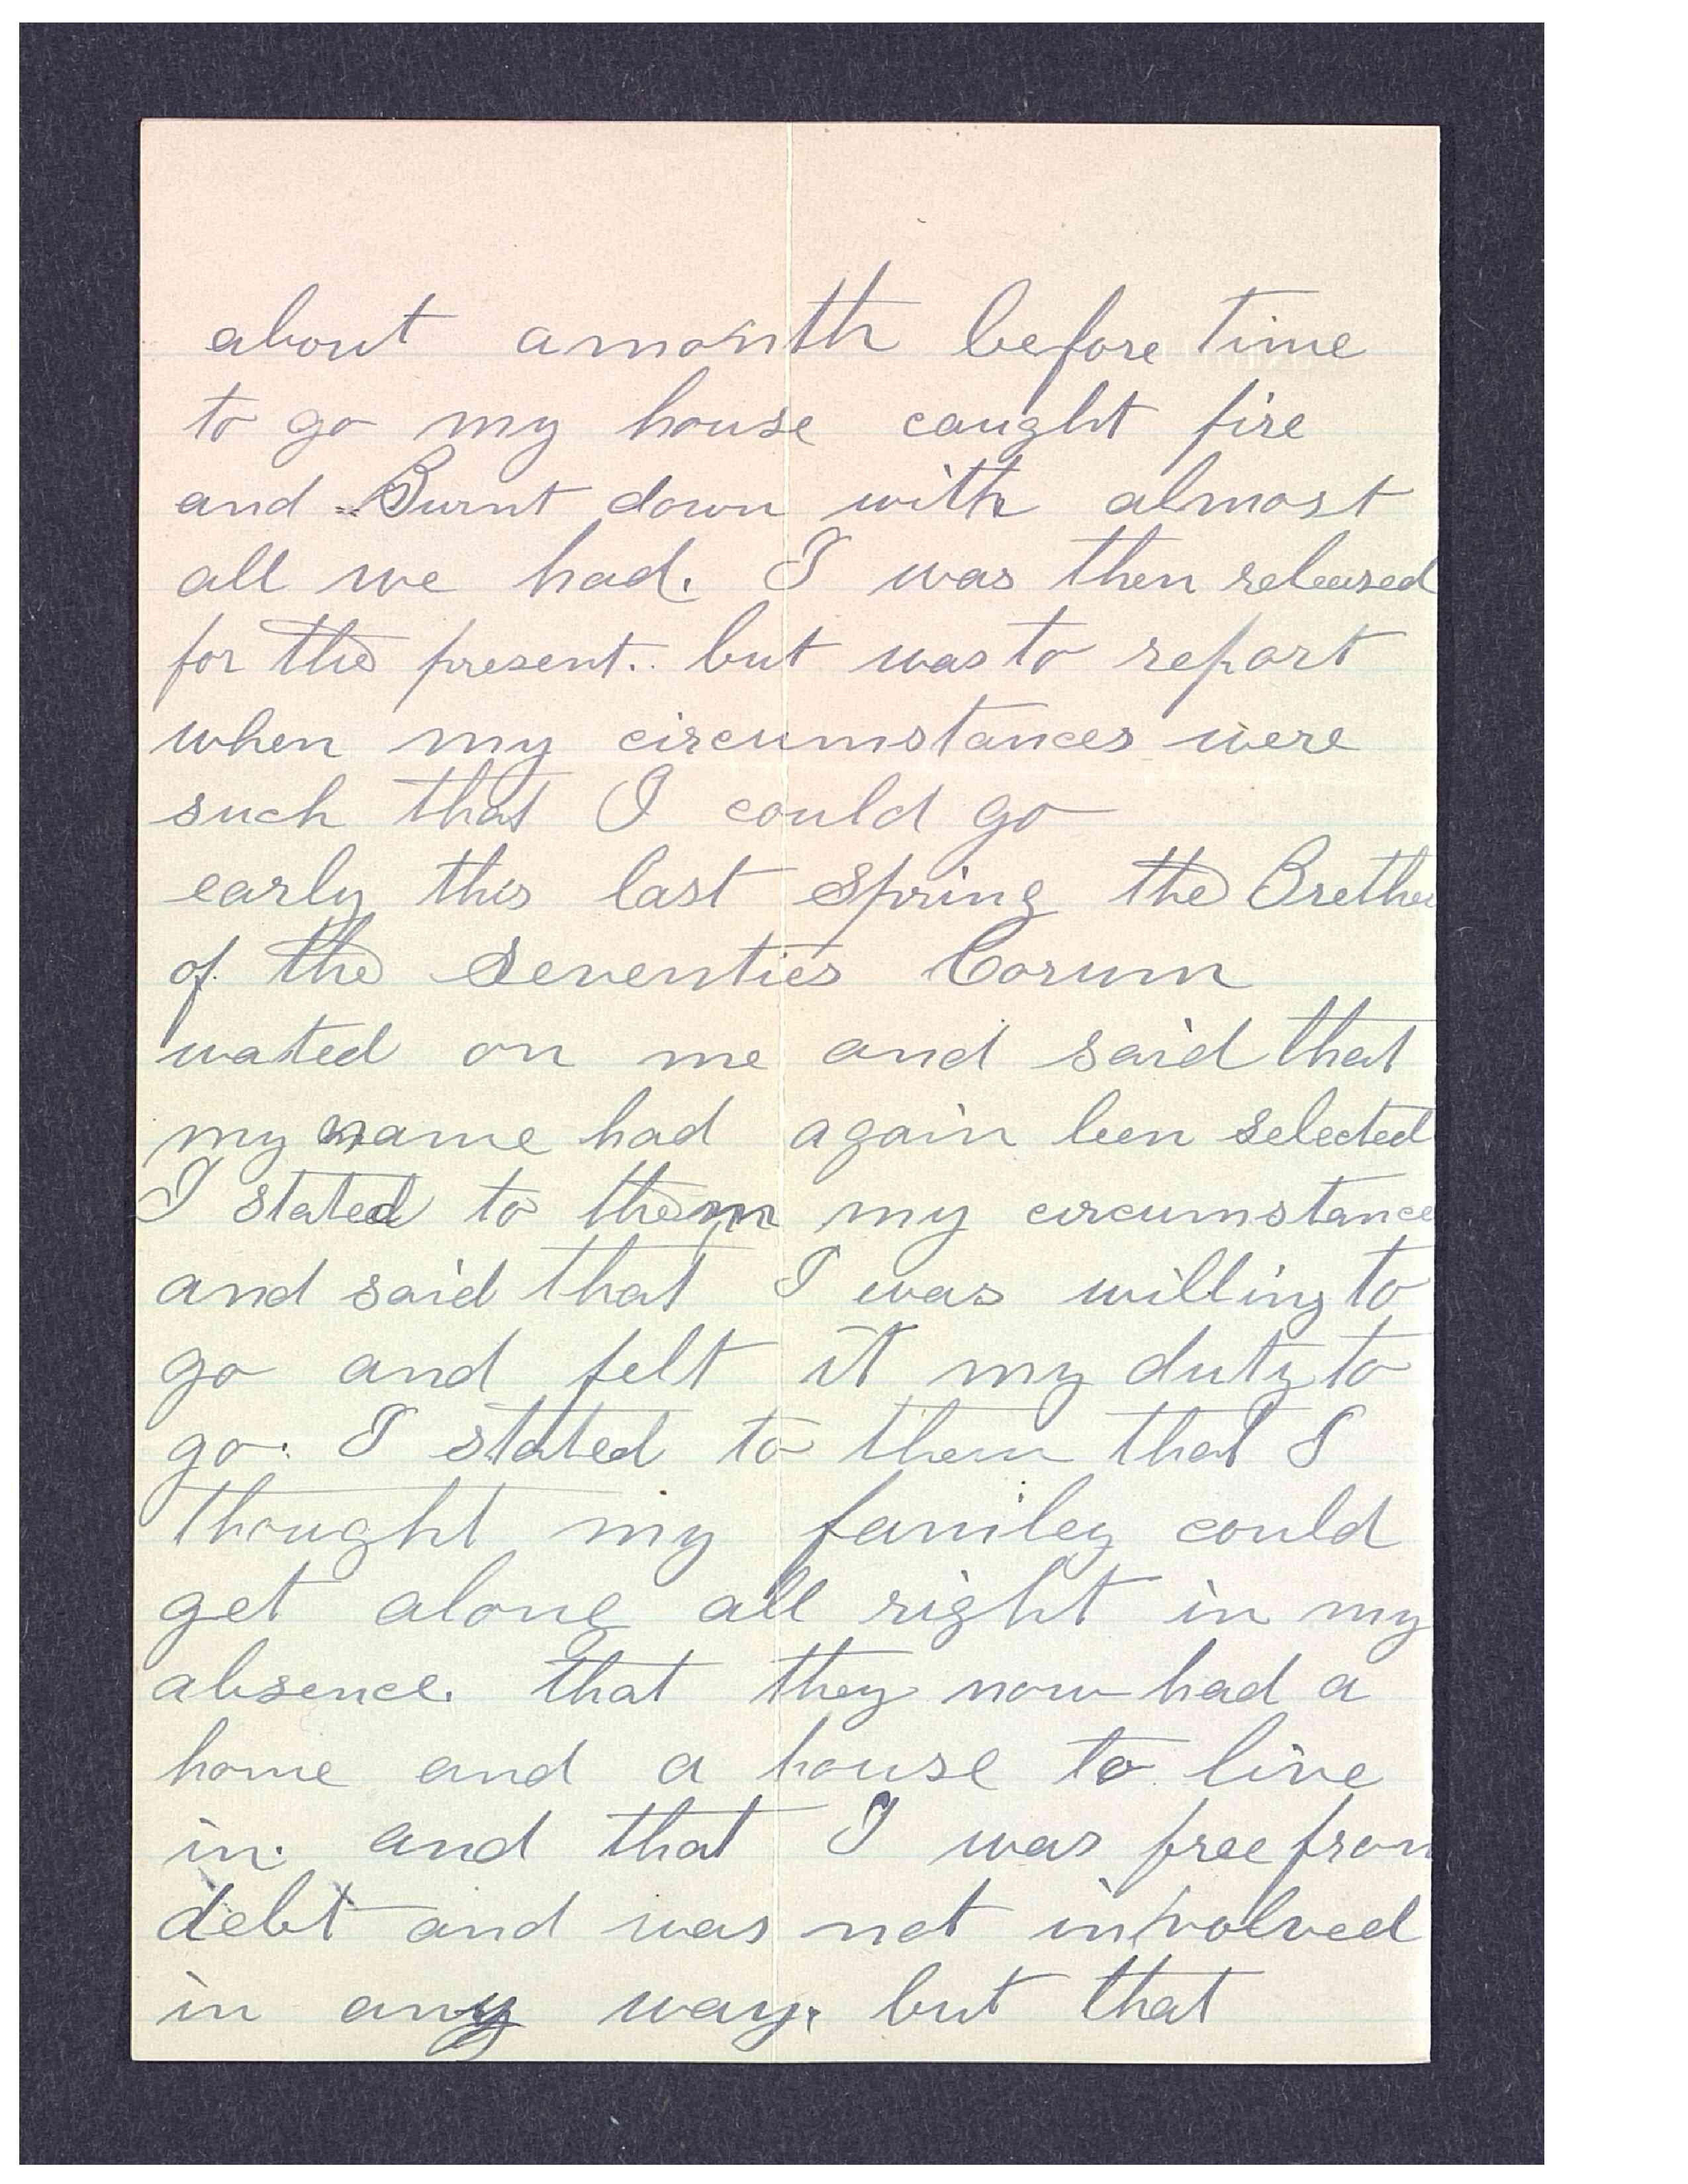 about a month before time
to go my house caught fire
and Burnt down with almost
all we had. I was then released
for the present. but was to report
when my circumstances were
such that I could go
early this last spring the Brethe
of the Seventies Corum
wated on me and said that
my name had again been selected
I stated to them my circumstance
and said that I was willing to
go and felt it my duty to
go. I stated to them that I
thought my familey could
get along all right in my
absence. that they now had a
home and a house to live
in. and that I was free from
debt and was not involved
in any way. but that